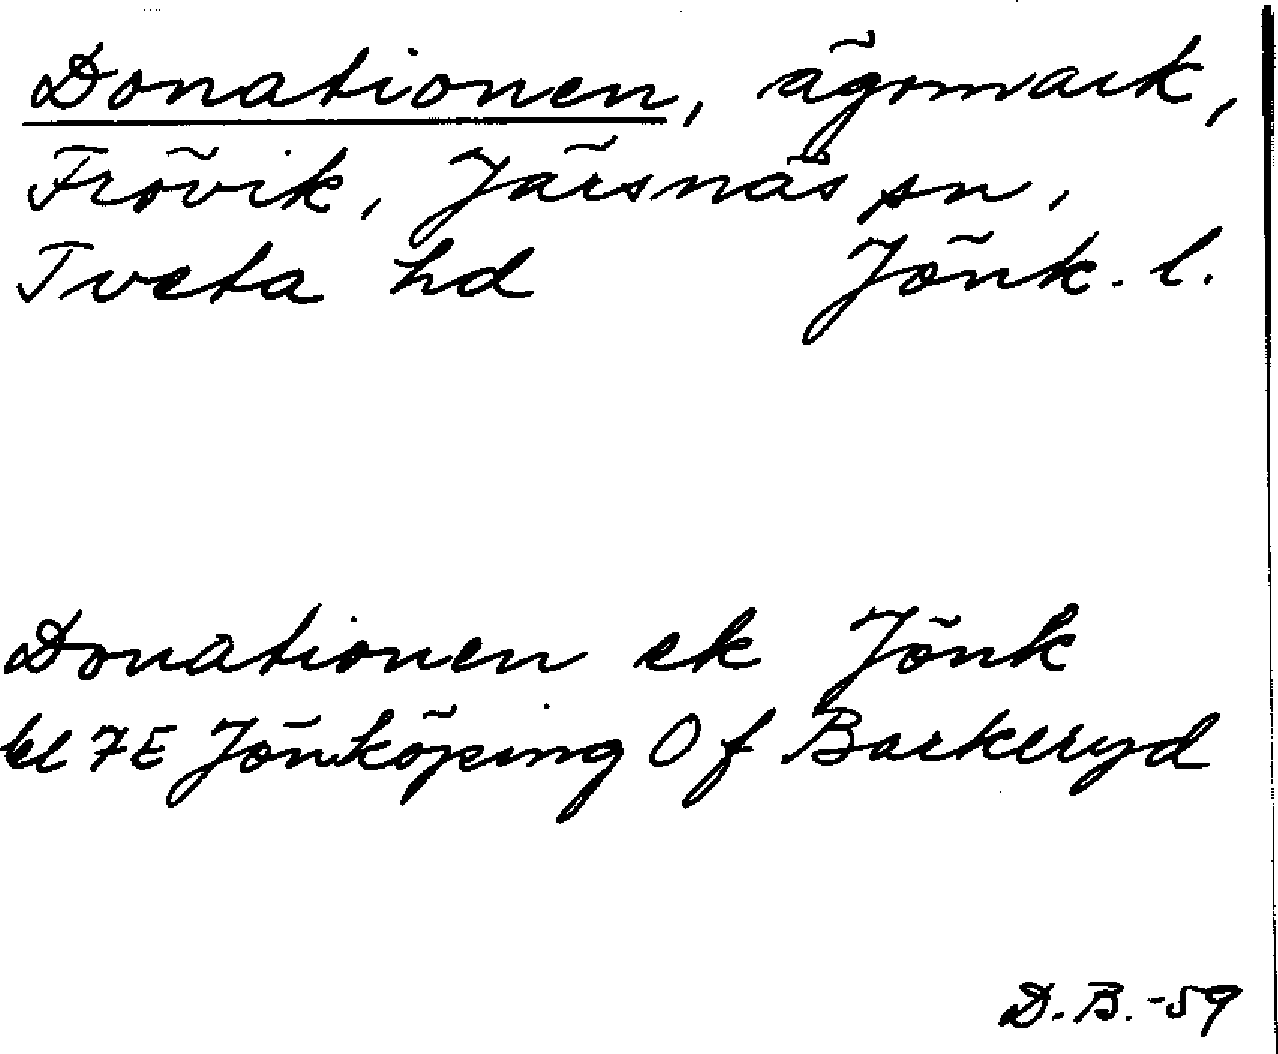 Donationen, ägomark,
Frövik, Järsnäs sn,
Tveta hd Jönk. l.
Donationen ek Jönk
bl 7E Jönköping Of Barkeryd
D.B. -59